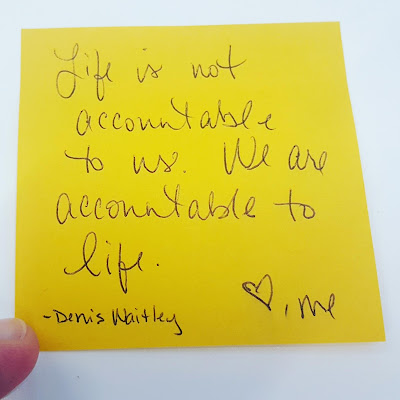 Life is not
accountable
to us. We are
accountable to
life.
-Denis Waitley
♡, me